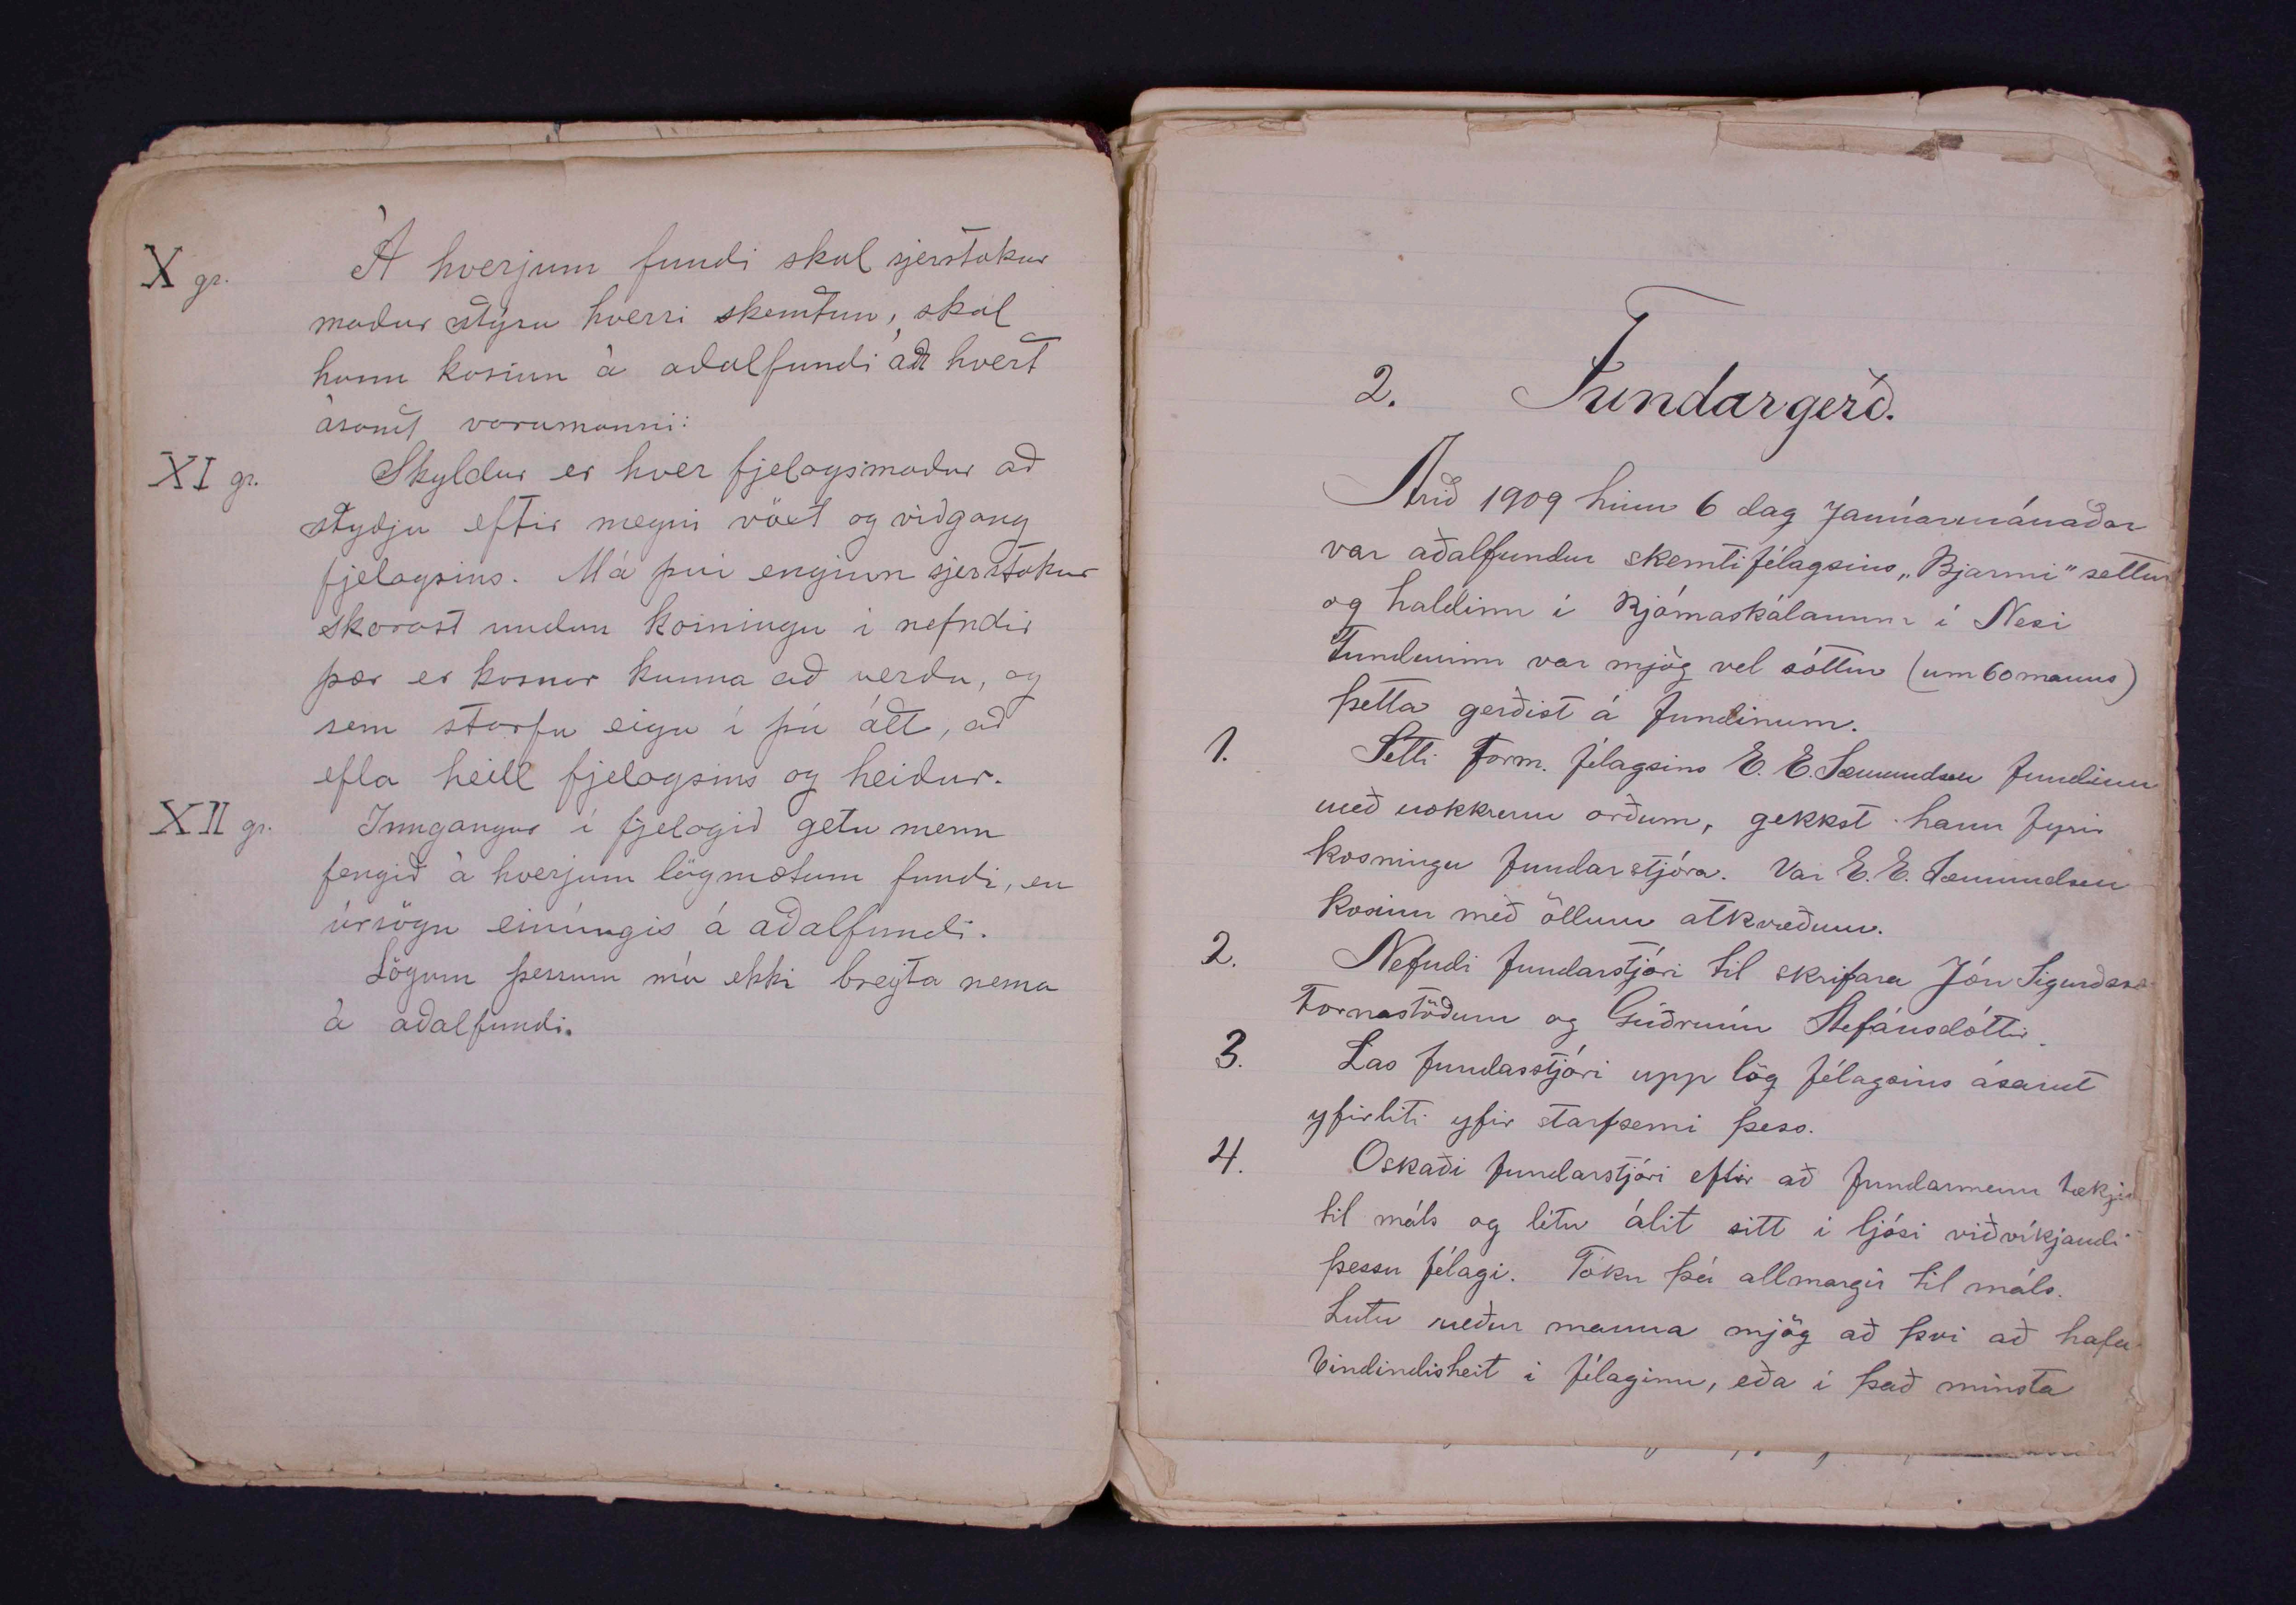 X gr. Á hverjum fundi skal sjerstakur
maður stýra hverri skemtun, skal
hann kosinn á aðalfundi ár hvert
ásamt varamanni:
XI gr. Skyldur er hver fjelagsmaður að
styðja eftir megni vöxt og viðgang
fjelagsins. Má því enginn sjerstakur
skorast undan kosningu í nefndir
þær er kosnar kunna að verða, og
sem starfa eiga í þá átt, að
efla heill fjelagsins og heiður.
XII gr. Inngangur í fjelagið geta menn
fengið á hverjum lögmætum fundi, en
úrsögn einúngis á aðalfundi.
Lögum þessum má ekki breyta nema
á aðalfundi.
2. Fundargerð.
Árið 1909 hinn 6 dag Janúarmánaðar
var aðalfundur skemtifélagsins „Bjarmi" settur
og haldinn í Rjómaskálanum í Nesi
Fundurinn var mjög vel sóttur (um 60 manns)
Þetta gerðist á fundinum.
1. Setti form. félagsins E. E. Sæmundsen fundinn
með nokkrum orðum, gekkst hann fyrir
kosningu fundarstjóra. Var E. E. Sæmundsen
kosinn með öllum atkvæðum.
2. Nefndi fundarstjóri til skrifara Jón Sigurðsson
Fornastöðum og Guðrúnu Stefánsdóttir.
3. Las fundarstjóri upp lög félagsins ásamt
yfirliti yfir starfsemi þess.
4. Óskaði fundarstjóri eftir að fundarmenn tækju
til máls og létu álit sitt í ljósi viðvíkjandi
þessu félagi. Tóku þá allmargir til máls.
Lutu ræður manna mjög að því að hafa
bindindisheit í félaginu, eða í það minsta